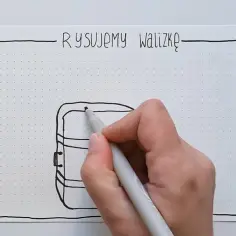 RYSUJEMY WALIZKĘ